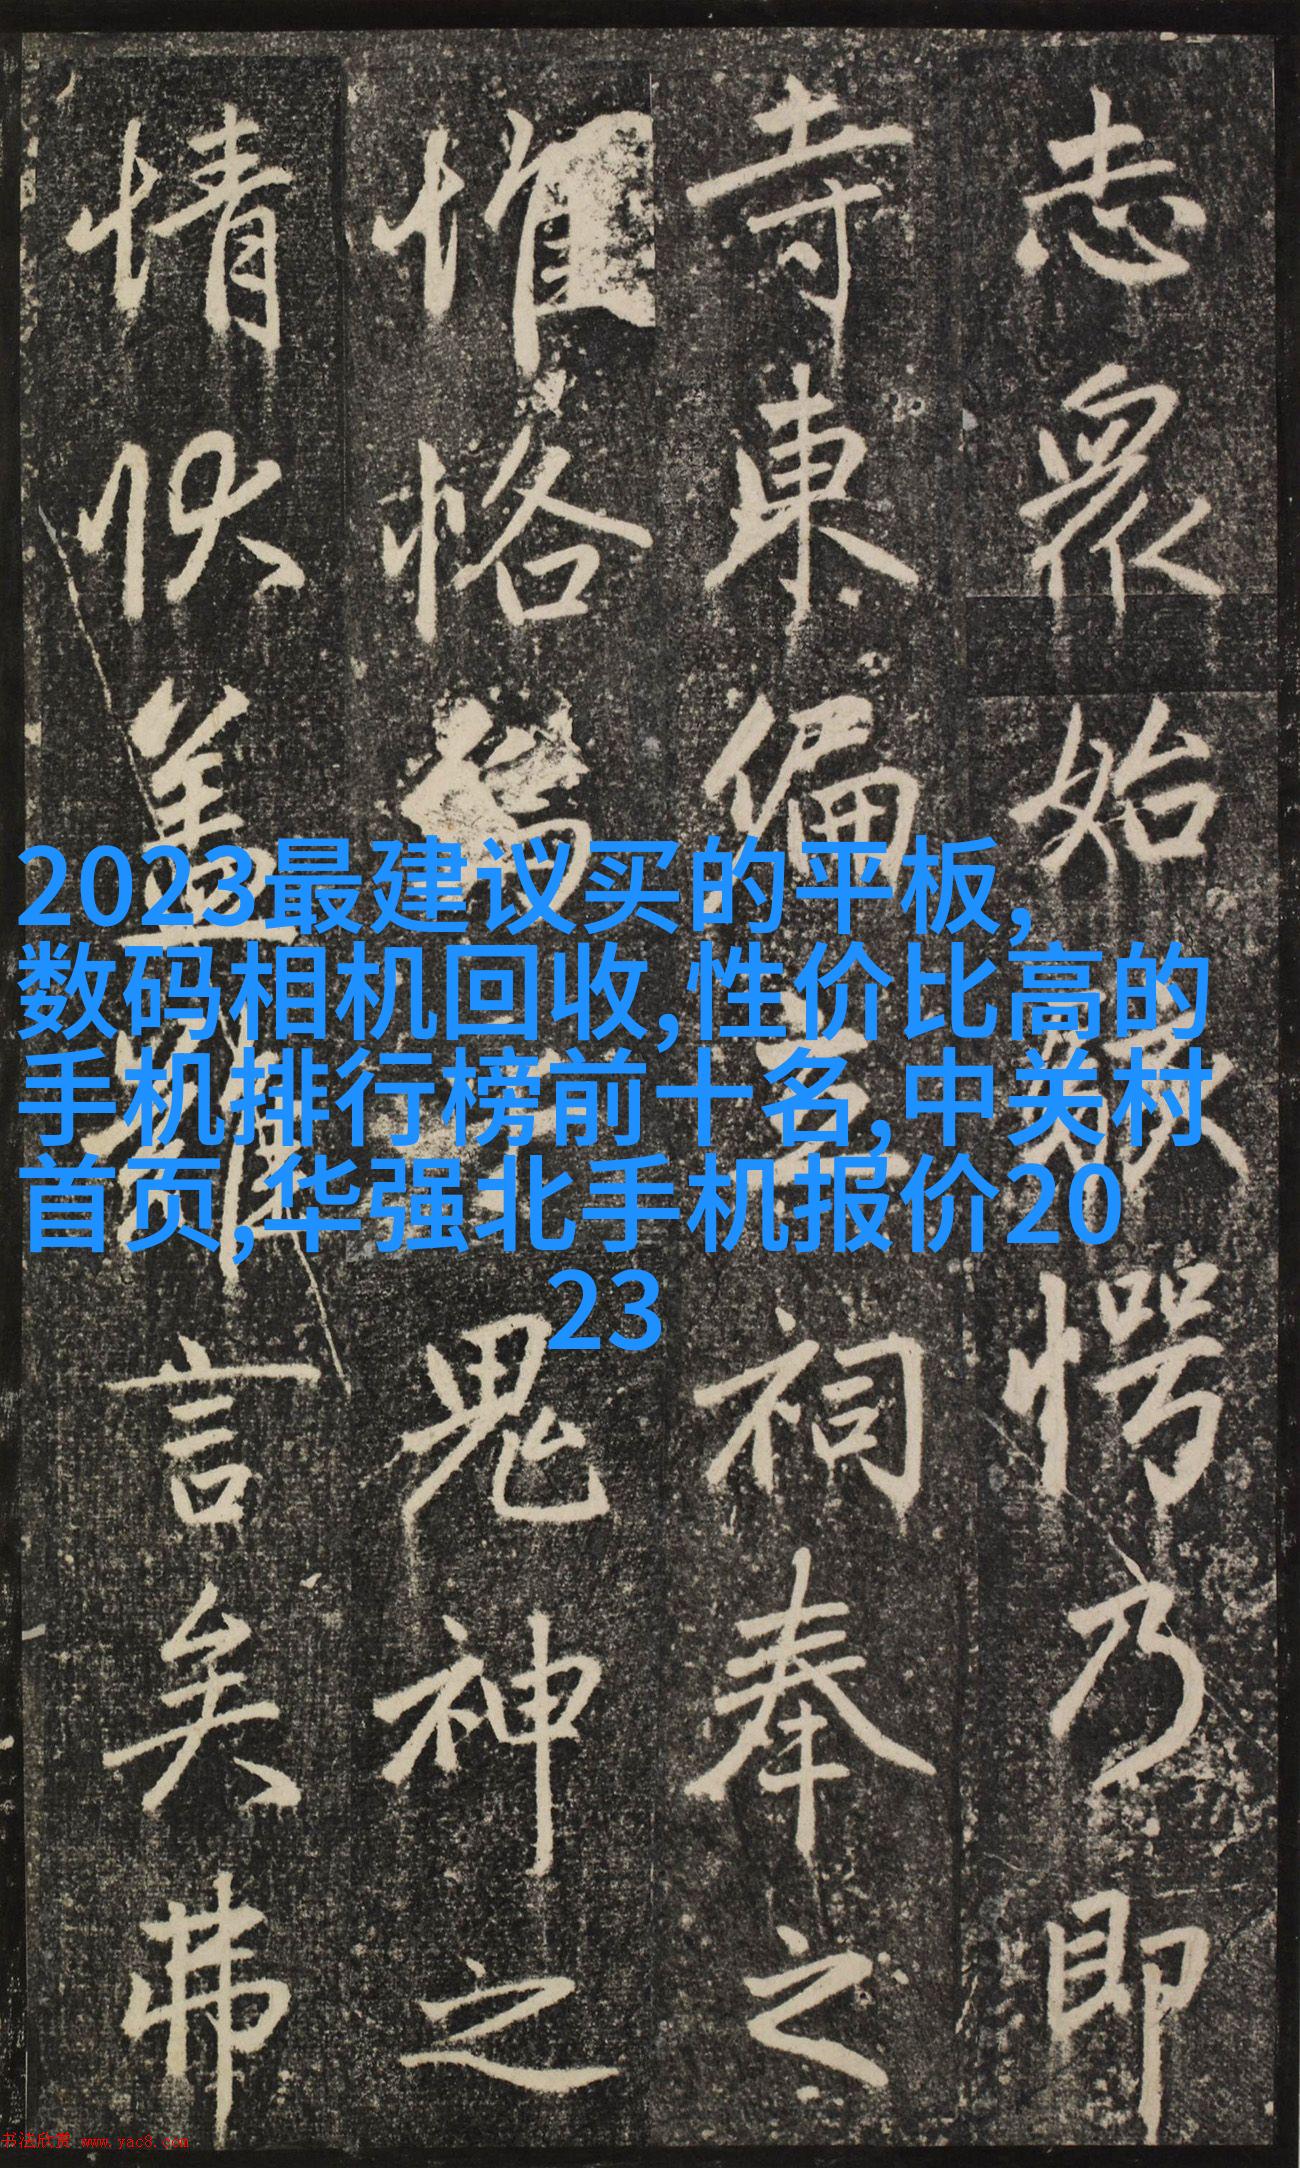 志眾始愕乃即
寺東偏立祠奉之
惟恪鬼神之
情狀蓋難言矣弗
2023最建议买的平板,
数码相机回收,性价比高的
手机排行榜前十名,中关村
首页,华强北手机报价20
23
书法欣赏 www.yac8.com